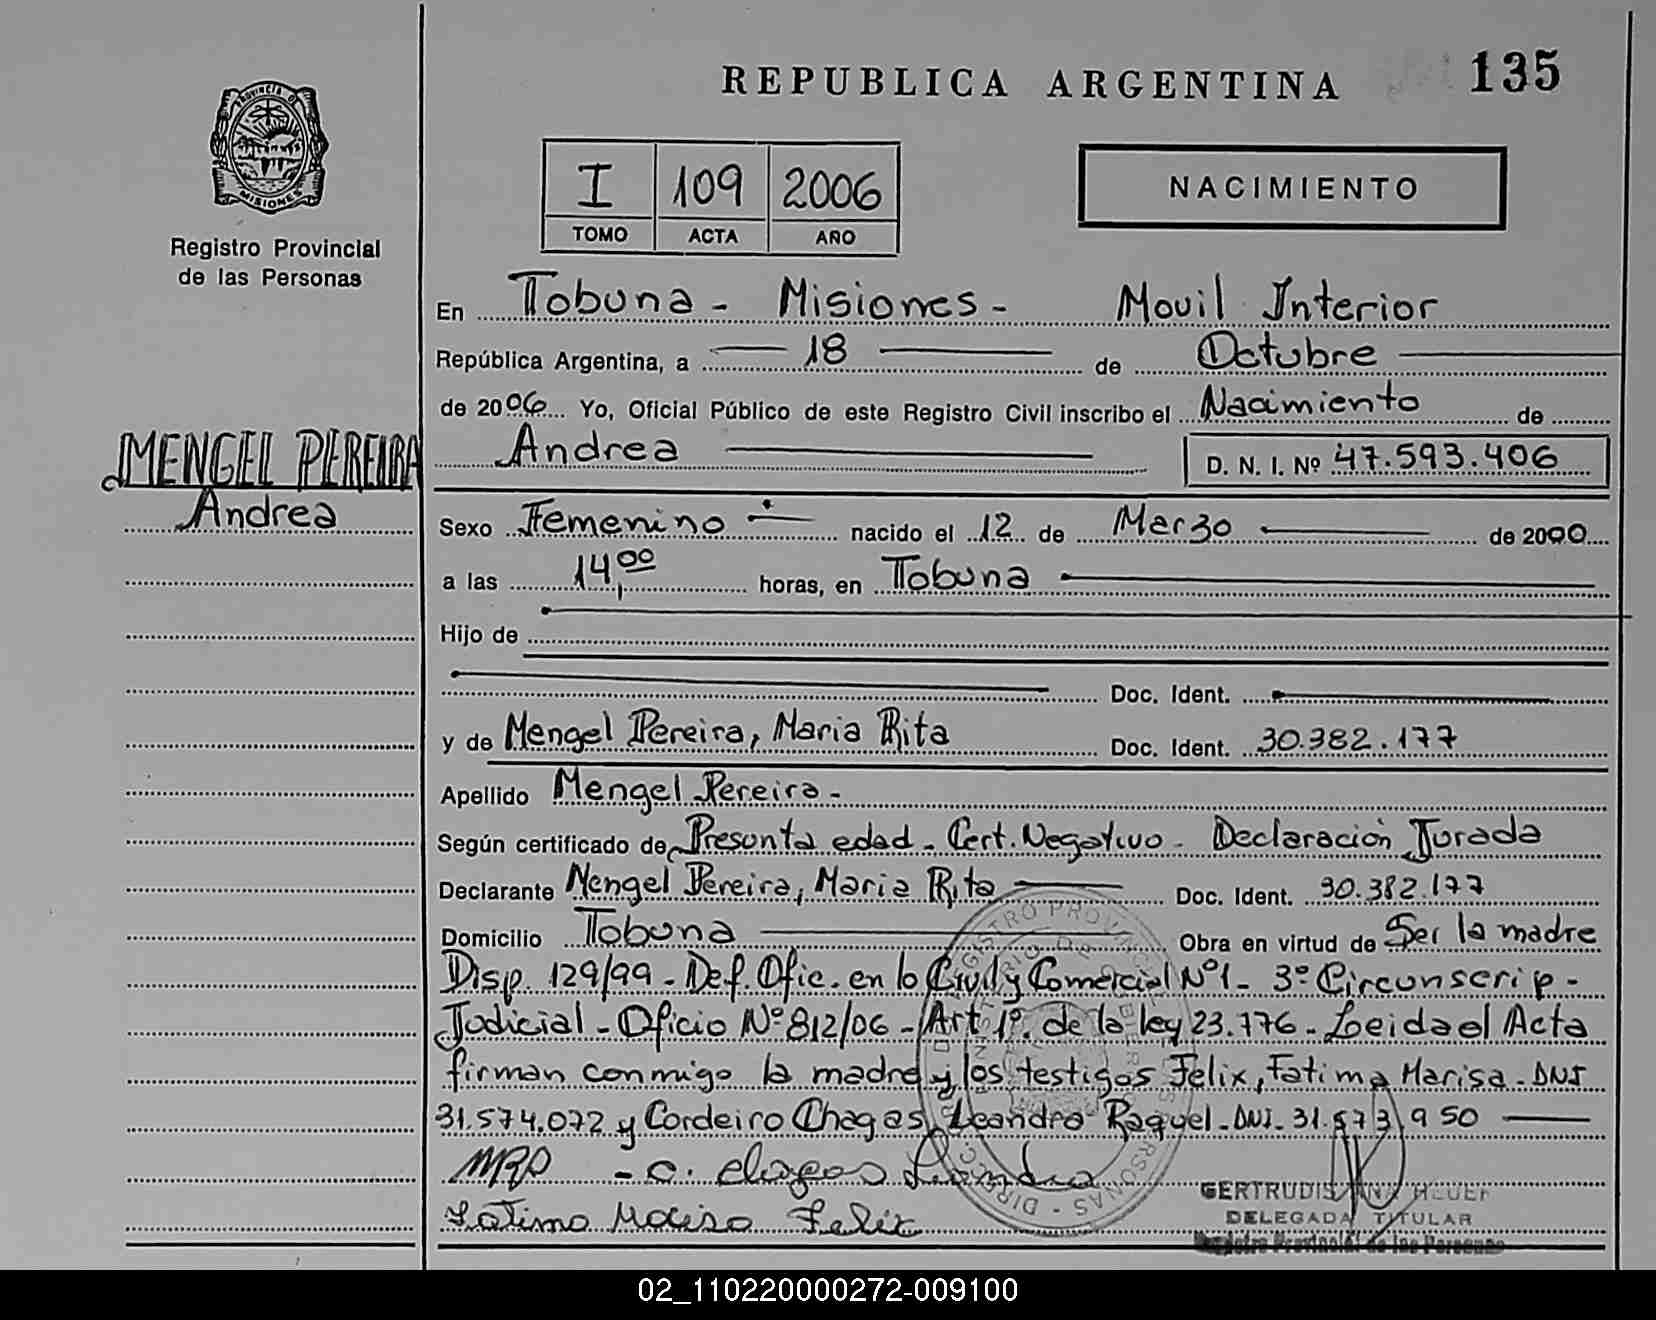 REPUBLICA ARGENTINA 135
PROVINCIA DE
MISIONES
Registro Provincial
de las Personas
I 109 2006
TOMO ACTA AÑO
NACIMIENTO
En Tobuna - Misiones - Movil Interior
República Argentina, a 18 de Octubre
de 2006 Yo, Oficial Público de este Registro Civil inscribo el Nacimiento de
Andrea D. N. I. Nº 47.593.406
MENGEL PEREIRA
Andrea
Sexo Femenino nacido el 12 de Marzo de 2000
a las 14,00 horas, en Tobuna
Hijo de
Doc. Ident.
y de Mengel Pereira, Maria Rita Doc. Ident. 30.382.177
Apellido Mengel Pereira -
Según certificado de Presunta edad - Cert. Negativo - Declaración Jurada
Declarante Mengel Pereira, Maria Rita Doc. Ident. 30.382.177
Domicilio Tobuna Obra en virtud de Ser la madre
Disp. 129/99 - Def. Ofic. en lo Civil y Comercial Nº1 - 3º Circunscrip -
Judicial - Oficio Nº 812/06 - Art 1º de la ley 23.776 - Leida el Acta
firman conmigo la madre y los testigos Felix, Fatima Marisa - DNI
31.574.072 y Cordeiro Chagas, Leandro Raquel - DNI - 31.573.950
MRP - C. Chagas Leandro
Fatima Marisa Felix
GERTRUDIS ANA
DELEGADA TITULAR
Registro Provincial de las Personas
02_110220000272-009100